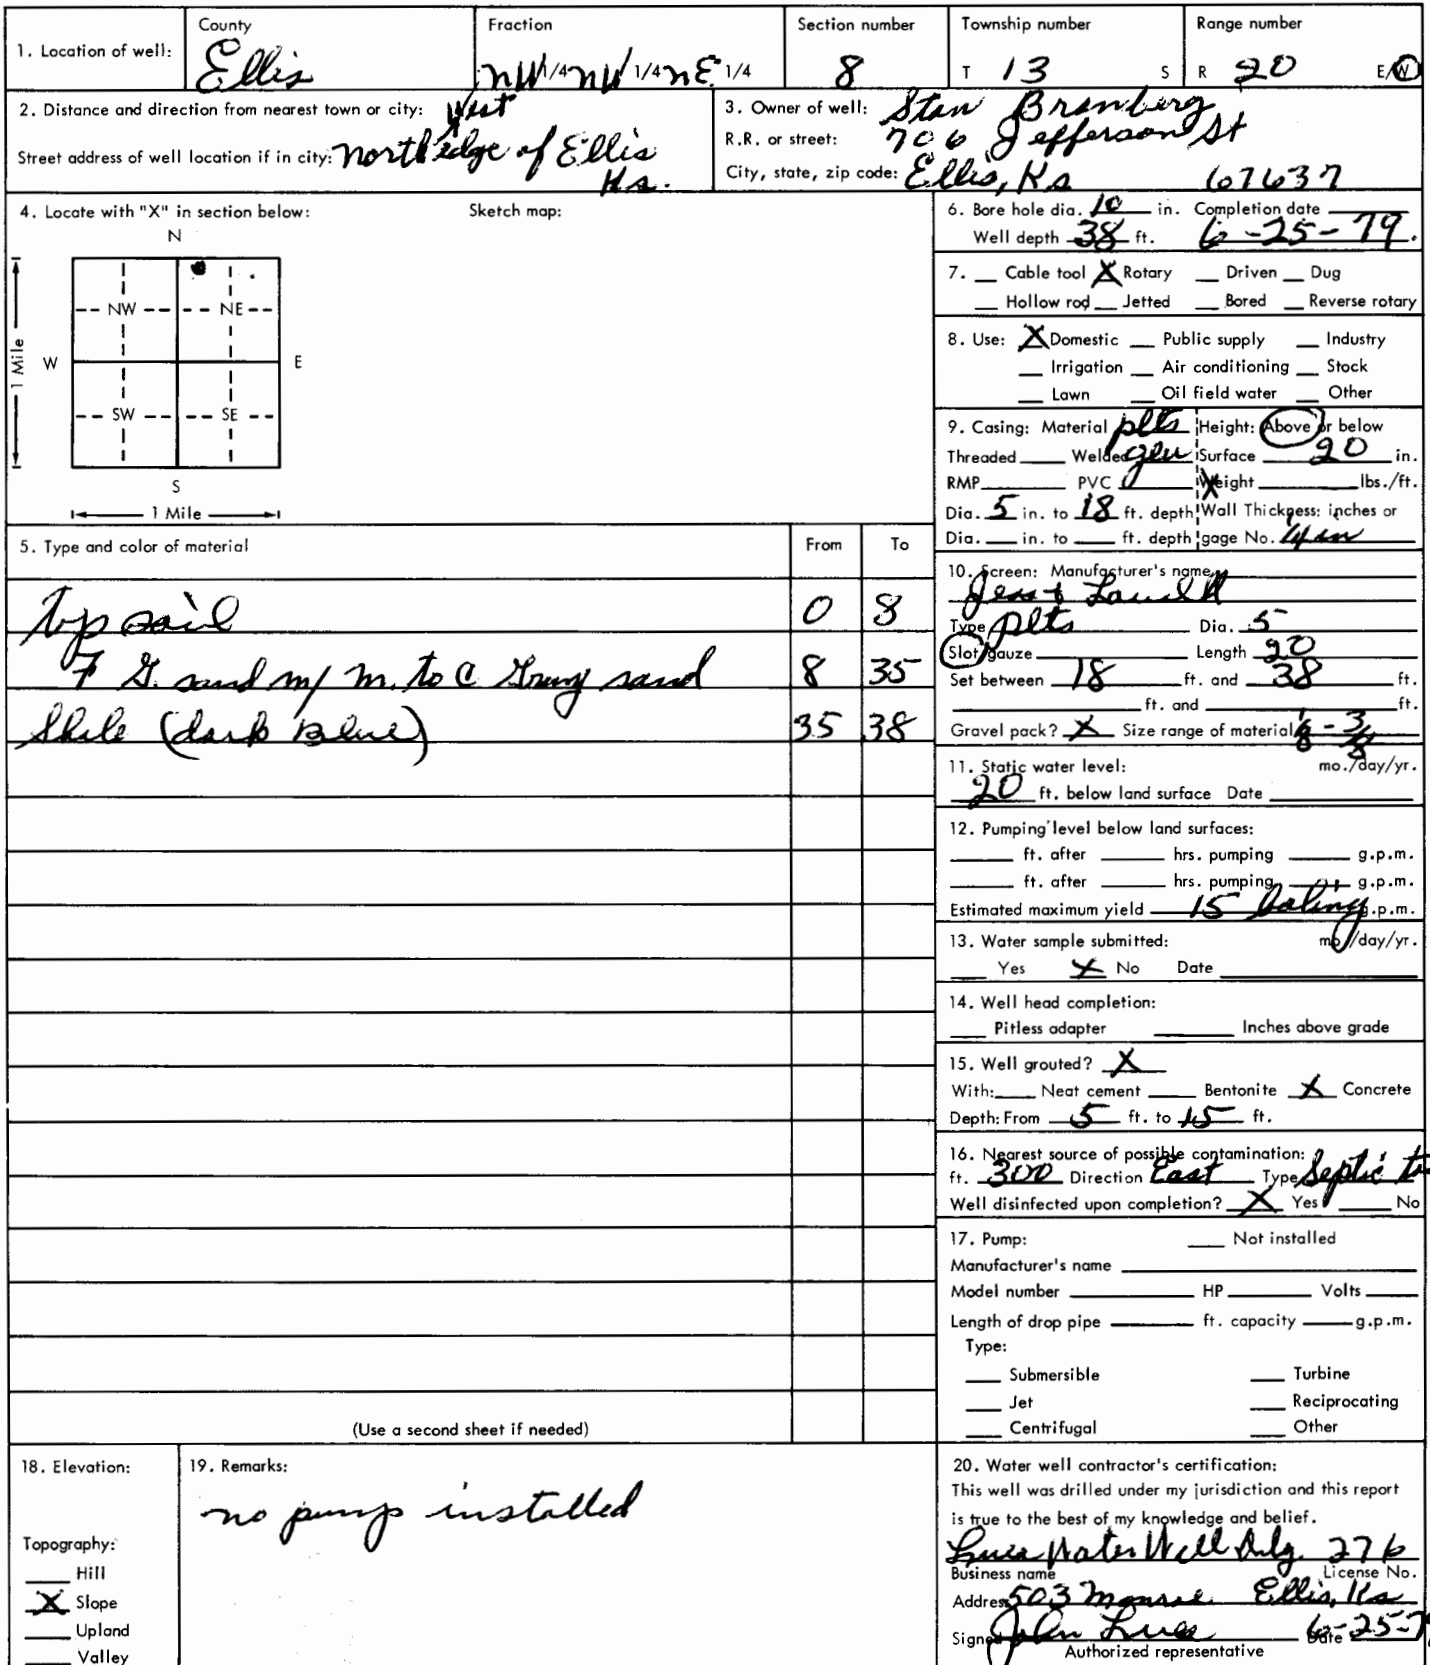 1. Location of well: County Ellis Fraction NW 1/4 NW 1/4 NE 1/4 Section number 8 Township number T 13 S Range number R 20 E/W
2. Distance and direction from nearest town or city: West
Street address of well location if in city: North edge of Ellis
Ks.
3. Owner of well: Stan
R.R. or street: 706 Jefferson St
City, state, zip code: Ellis, Ks 67637
4. Locate with "X" in section below: Sketch map:
N
NW NE
W E
1 Mile
SW SE
S
1 Mile
5. Type and color of material From To
top soil 0 8
F G. sand m/ m. to C Grey sand 8 35
Shale (dark Blue) 35 38
(Use a second sheet if needed)
6. Bore hole dia. 10 in. Completion date
Well depth 38 ft. 6-25-79.
7. __ Cable tool X Rotary __ Driven __ Dug
__ Hollow rod __ Jetted __ Bored __ Reverse rotary
8. Use: X Domestic __ Public supply __ Industry
__ Irrigation __ Air conditioning __ Stock
__ Lawn __ Oil field water __ Other
9. Casing: Material plts Height: Above or below
Threaded ___ Welded glu Surface 20 in.
RMP ___ PVC ___ Weight ___ lbs./ft.
Dia. 5 in. to 18 ft. depth Wall Thickness: inches or
Dia. ___ in. to ___ ft. depth gage No. 1/4 in
10. Screen: Manufacturer's name
Jess &
Type plts Dia. 5
Slot/gauze ___ Length 20
Set between 18 ft. and 38 ft.
___ ft. and ___ ft.
Gravel pack? X Size range of material 1/8 - 3/8
11. Static water level: mo./day/yr.
20 ft. below land surface Date ___
12. Pumping level below land surfaces:
___ ft. after ___ hrs. pumping ___ g.p.m.
___ ft. after ___ hrs. pumping ___ g.p.m.
Estimated maximum yield 15 bailing g.p.m.
13. Water sample submitted: mo/day/yr.
__ Yes X No Date ___
14. Well head completion:
__ Pitless adapter ___ Inches above grade
15. Well grouted? X
With: __ Neat cement __ Bentonite X Concrete
Depth: From 5 ft. to 15 ft.
16. Nearest source of possible contamination:
ft. 300 Direction East Type Septic
Well disinfected upon completion? X Yes __ No
17. Pump: __ Not installed
Manufacturer's name ___
Model number ___ HP ___ Volts ___
Length of drop pipe ___ ft. capacity ___ g.p.m.
Type:
__ Submersible __ Turbine
__ Jet __ Reciprocating
__ Centrifugal __ Other
18. Elevation:
Topography:
__ Hill
X Slope
__ Upland
__ Valley
19. Remarks:
no pump installed
20. Water well contractor's certification:
This well was drilled under my jurisdiction and this report
is true to the best of my knowledge and belief.
Water Well Drlg. 276
Business name License No.
Address 503 Monroe Ellis, Ks
Signed John Date 6-25-79
Authorized representative